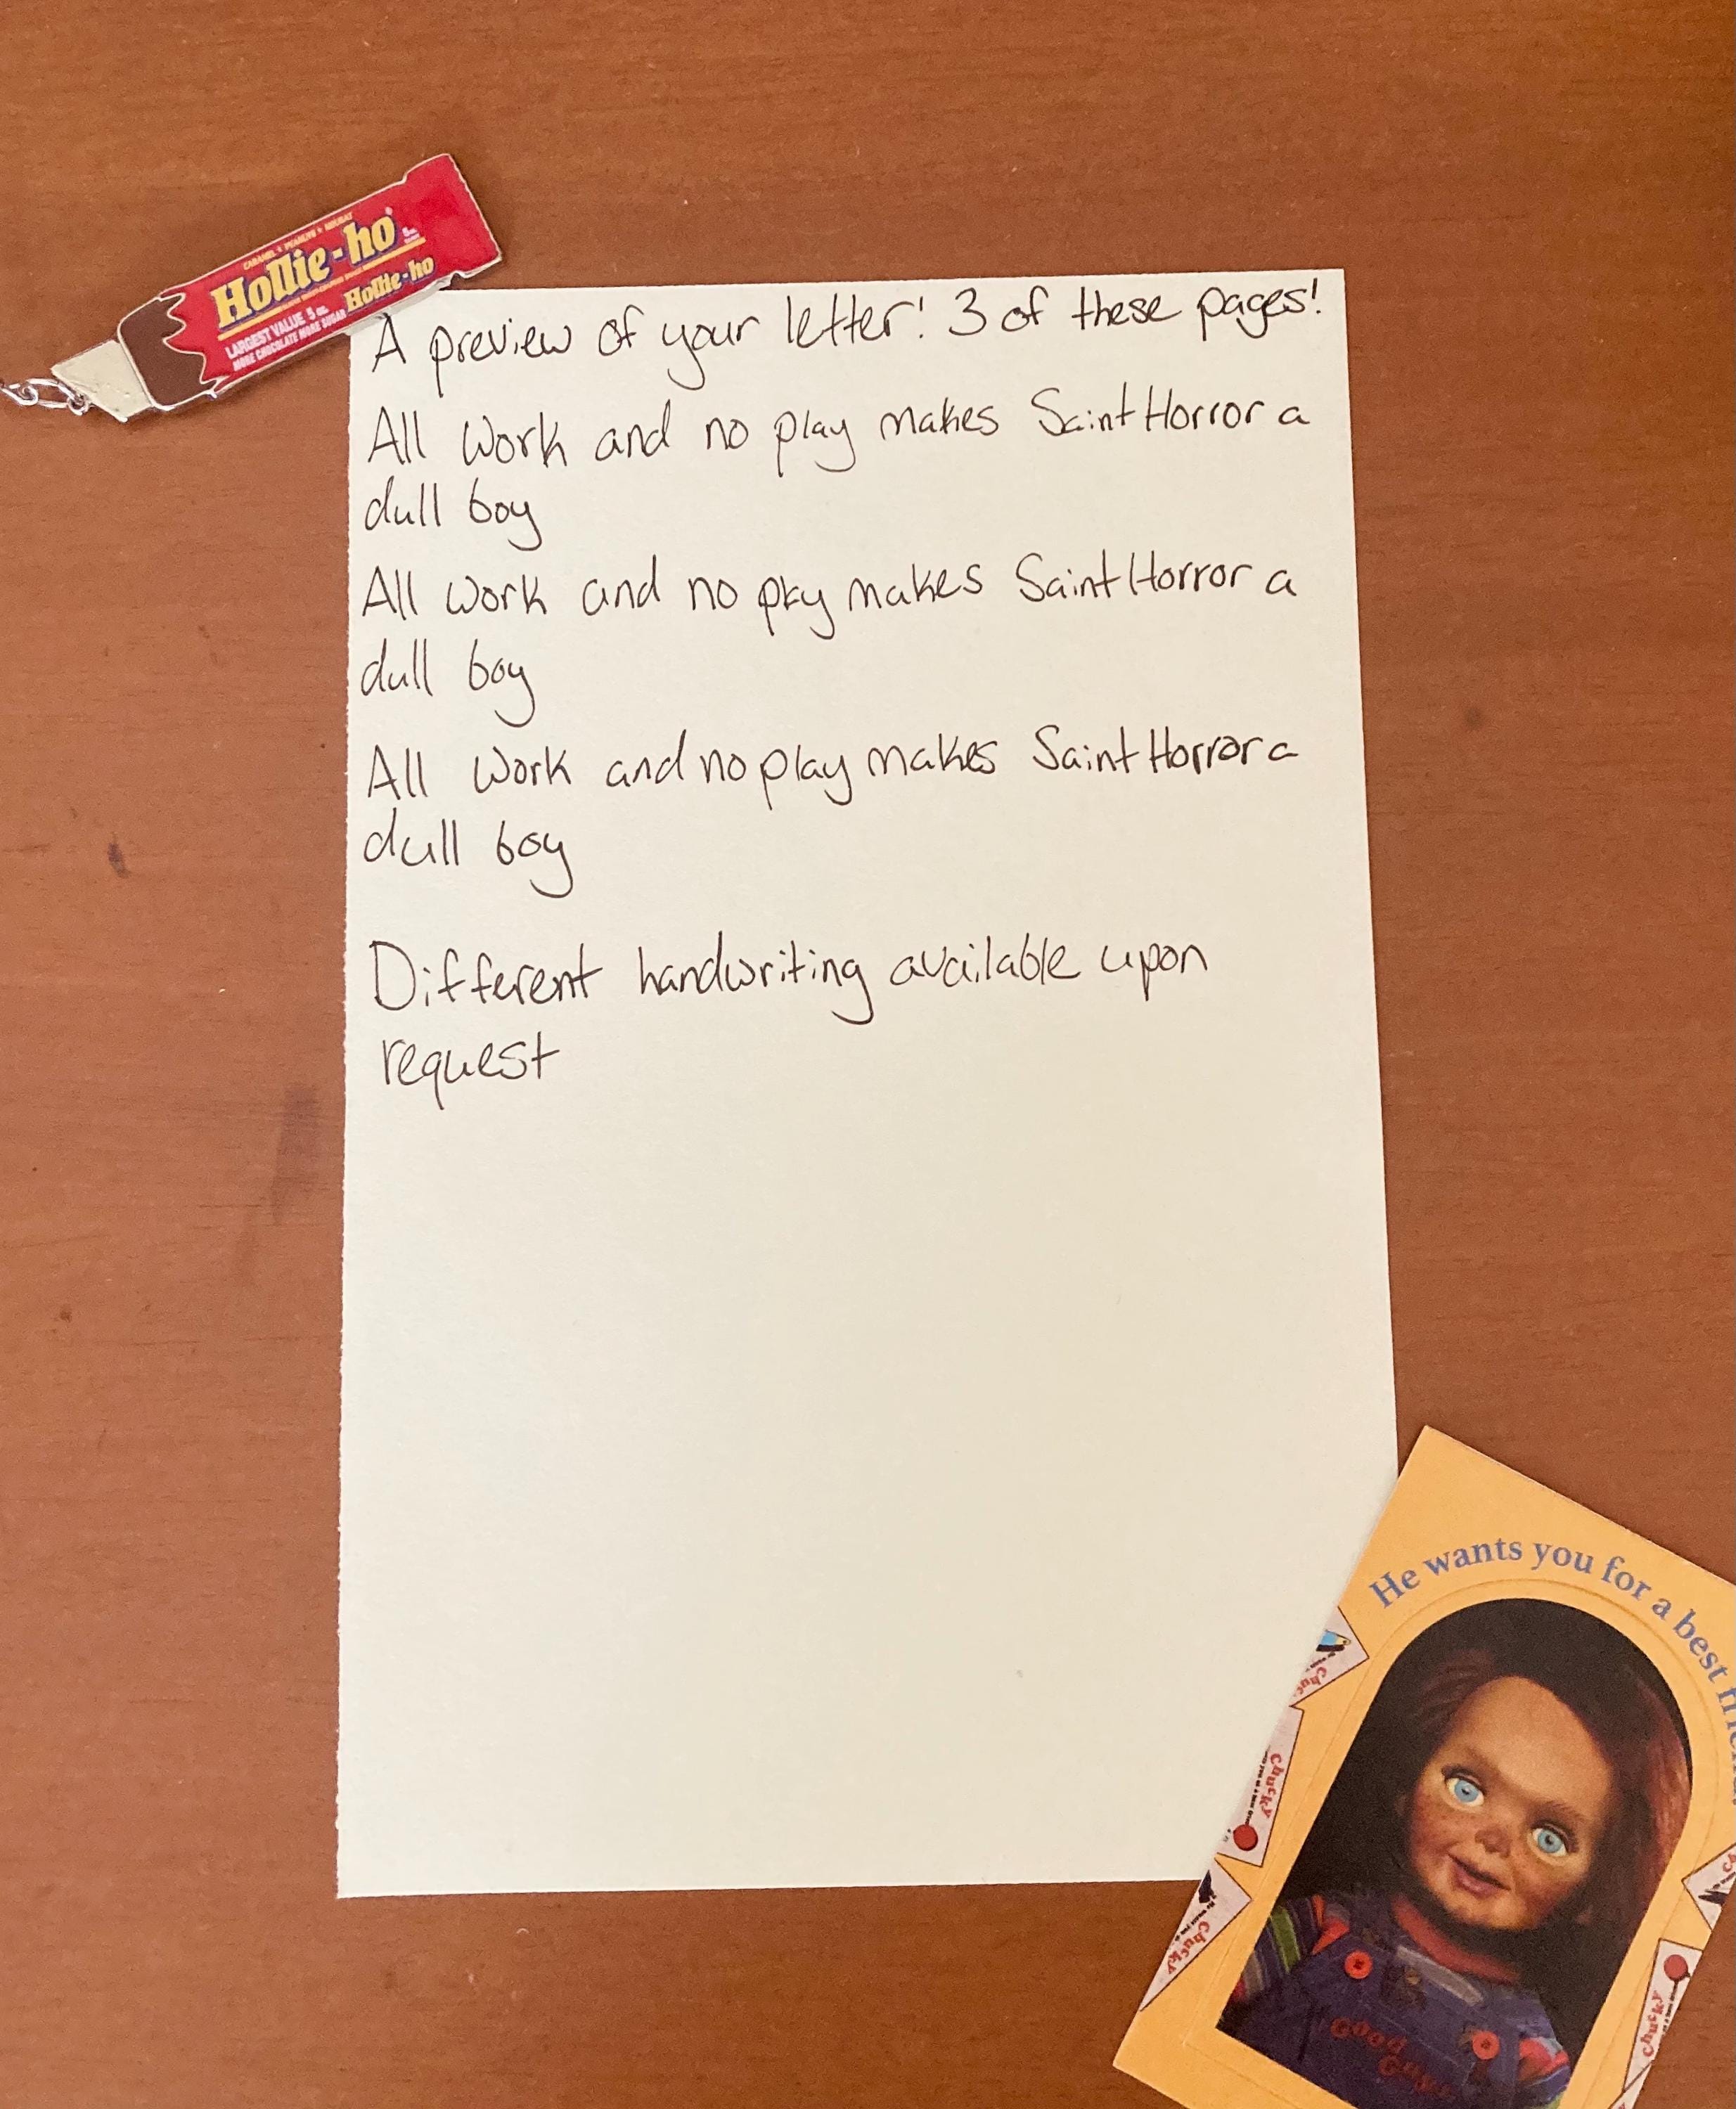 CARAMEL • PEANUTS • NOUGAT
Hollie-ho
5 oz.
Hollie-ho
LARGEST VALUE 5 oz.
MORE CHOCOLATE MORE SUGAR
A preview of your letter! 3 of these pages!
All work and no play makes SaintHorror a
dull boy
All work and no play makes SaintHorror a
dull boy
All work and no play makes SaintHorror a
dull boy
Different handwriting available upon
request
He wants you for a best friend
Chucky
Chucky
Chucky
Good
Guys